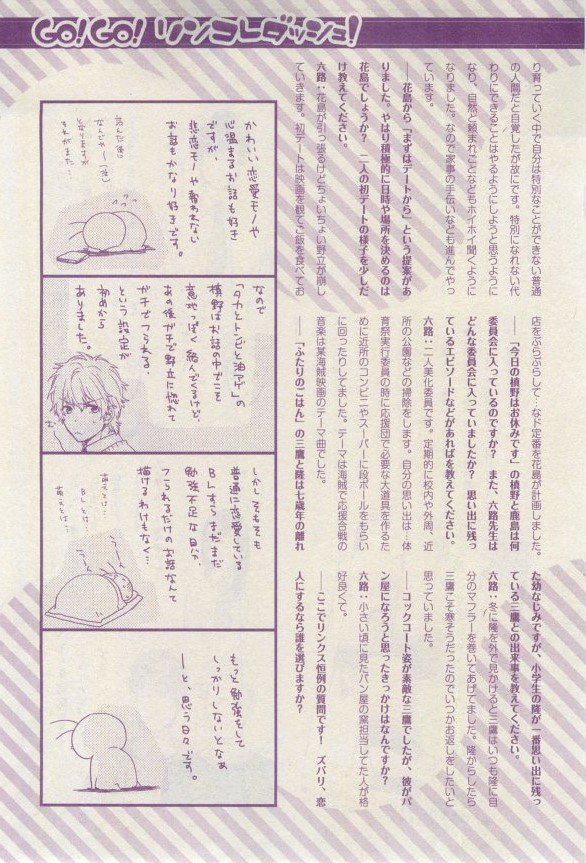 GO!GO! リンコレダッシュ!
り育っていく中で自分は特別なことができない普通
の人間だと自覚したが故にです。特別になれない代
わりにできることはやるようにしようと思うように
なり、自然と頼まれごとなどもホイホイ聞くように
なりました。なので家事の手伝いなども進んでやっ
ています。
――花島から「まずはデートから」という提案があ
りました。やはり積極的に日時や場所を決めるのは
花島でしょうか? 二人の初デートの様子を少しだ
け教えてください。
六路:花島が引っ張るけどちょいちょい野立が崩し
ていきます。初デートは映画を観てご飯を食べてお
店をぶらぶらして…など定番を花島が計画しました。
――「今日の槙野はお休みです」の槙野と鹿島は何
委員会に入っているのですか? また、六路先生は
どんな委員会に入っていましたか? 思い出に残っ
ているエピソードなどがあればを教えてください。
六路:二人美化委員です。定期的に校内や外周、近
所の公園などの掃除をします。自分の思い出は…体
育祭実行委員の時に応援団で必要な大道具を作るた
めに近所のコンビニやスーパーに段ボールをもらい
に回ったりしてました。テーマは海賊で応援合戦の
音楽は某海賊映画のテーマ曲でした。
――「ふたりのごはん」の三鷹と隆は七歳年の離れ
た幼なじみですが、小学生の隆が一番思い出に残っ
ている三鷹との出来事を教えてください。
六路:冬に隆を外で見かけると三鷹はいつも隆に自
分のマフラーを巻いてあげてました。隆からしたら
三鷹こそ寒そうだったのでいつかお返しをしたいと
思っていました。
――コックコート姿が素敵な三鷹でしたが、彼がパ
ン屋になろうと思ったきっかけはなんですか?
六路:小さい頃に見たパン屋の窯担当してた人が格
好良くて。
――ここでリンクス恒例の質問です! ズバリ、恋
人にするなら誰を選びますか?
かわいい恋愛モノや
心温まるお話も好き
ですが、
悲恋モノや報われない
お話もかなり好きです。
読んだ後は
なんでや〜(泣)
となりますが
それがまた…
なので
「タカとトンビと油アゲ」の
槙野はお話の中でこそ
意地っぽく絡んでくるけど、
あの後ガチで野立に惚れて
ガチでフラれる、
という設定が
初めから
ありました。
しかしそもそも
普通に恋愛している
BLすらまだまだ
勉強不足な自分、
フラれるだけのお話なんて
描けるわけもなく…
BLとは…
萌えとは…
萌えとは…
もっと勉強をして
しっかりしないとなあ
ーと、思う日々です。